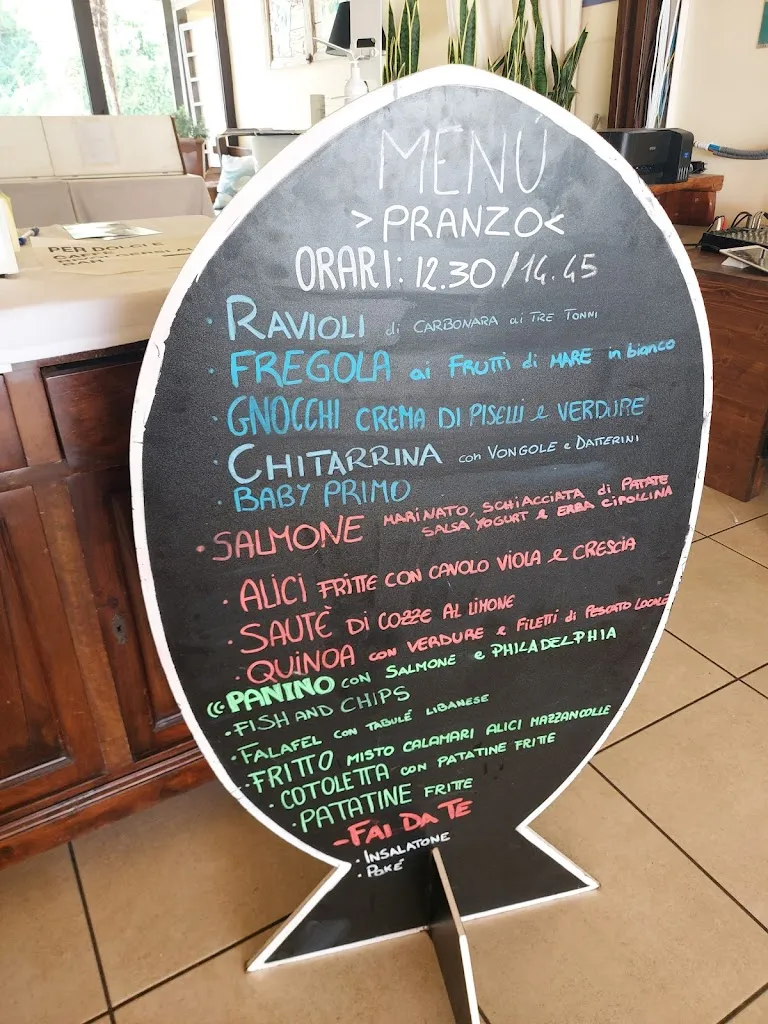 MENÚ
>PRANZO<
ORARI: 12.30/14.45
· RAVIOLI di CARBONARA ai TRE TONNI
· FREGOLA ai FRUTTI di MARE in bianco
· GNOCCHI CREMA DI PISELLI e VERDURE
· CHITARRINA con VONGOLE e DATTERINI
· BABY PRIMO
· SALMONE MARINATO, SCHIACCIATA di PATATE
SALSA YOGURT e ERBA CIPOLLINA
· ALICI FRITTE CON CAVOLO VIOLA e CRESCIA
· SAUTÈ DI COZZE AL LIMONE
· QUINOA con VERDURE e FILETTI di PESCATO LOCALE
· PANINO CON SALMONE e PHILADELPHIA
· FISH AND CHIPS
· FALAFEL con TABULÉ LIBANESE
· FRITTO MISTO CALAMARI ALICI MAZZANCOLLE
· COTOLETTA con PATATINE FRITTE
· PATATINE FRITTE
-FAI DA TE
· INSALATONE
· POKÉ
PER DOLCI E
BAR